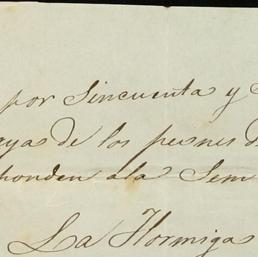 por Sincuenta y
ayas de los peones d
ponden a la Sem
La Hormiga